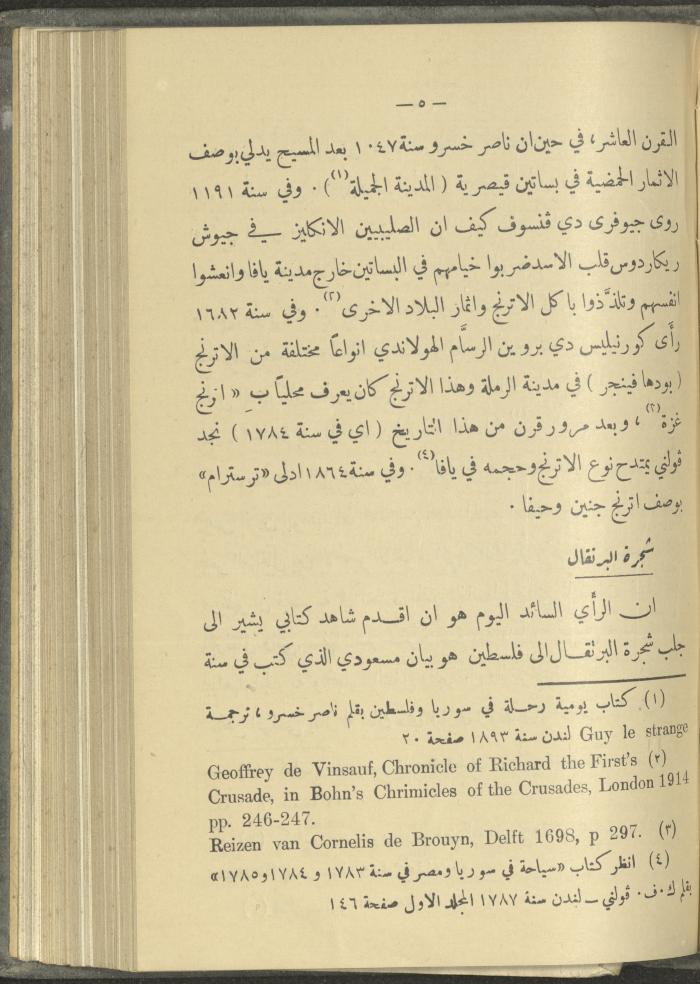 — ٥ —
القرن العاشر، في حين ان ناصر خسرو سنة ١٠٤٧ بعد المسيح يدلي بوصف
الاثمار الحمضية في بساتين قيصرية ( المدينة الجميلة(١) ) ٠ وفي سنة ١١٩١
روى جيوفرى دي ڤنسوف كيف ان الصليبيين الانكليز في جيوش
ريكاردوس قلب الاسد ضربوا خيامهم في البساتين خارج مدينة يافا وانعشوا
انفسهم وتلذَّذوا باكل الاترنج واثمار البلاد الاخرى(٢) ٠ وفي سنة ١٦٨٢
رأى كورنيليس دي بروين الرسَّام الهولاندي انواعًا مختلفة من الاترنج
( بودها فينجر ) في مدينة الرملة وهذا الاترنج كان يعرف محليًّا بِ « ازنج
غزة(٣) ، وبعد مرور قرن من هذا التاريخ ( اي في سنة ١٧٨٤ ) نجد
ڤولني يمتدح نوع الاترنج وحجمه في يافا(٤) ٠ وفي سنة ١٨٦٤ ادلى «ترسترام»
بوصف اترنج جنين وحيفا ٠
شجرة البرتقال
ان الرأي السائد اليوم هو ان اقدم شاهد كتابي يشير الى
جلب شجرة البرتقال الى فلسطين هو بيان مسعودي الذي كتب في سنة
(١) كتاب يومية رحلة في سوريا وفلسطين بقلم ناصر خسرو ، ترجمة
Guy le strange لندن سنة ١٨٩٣ صفحة ٢٠
Geoffrey de Vinsauf, Chronicle of Richard the First's (٢)
Crusade, in Bohn's Chrimicles of the Crusades, London 1914
pp. 246-247.
Reizen van Cornelis de Brouyn, Delft 1698, p 297. (٣)
(٤) انظر كتاب «سياحة في سوريا ومصر في سنة ١٧٨٣ و ١٧٨٤ و١٧٨٥»
بقلم ك٠ف٠ ڤولني – لندن سنة ١٧٨٧ المجلد الاول صفحة ١٤٦